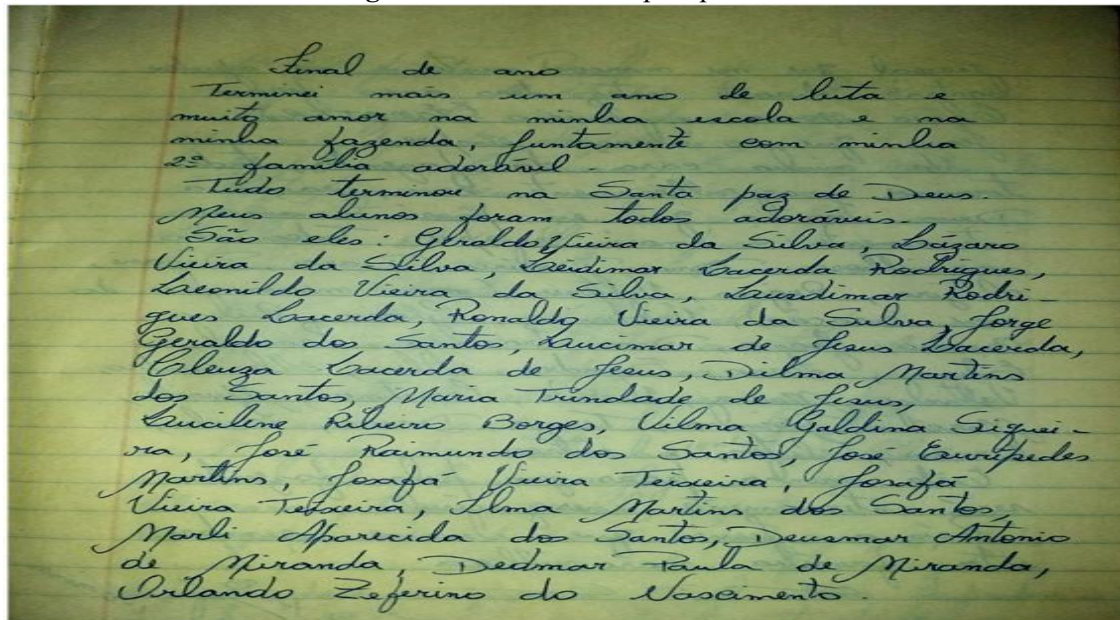 Final de ano
Terminei mais um ano de luta e
muito amor na minha escola e na
minha fazenda, juntamente com minha
2ª família adorável.
Tudo terminou na Santa paz de Deus.
Meus alunos foram todos adoráveis.
São eles: Geraldo Vieira da Silva, Lázaro
Vieira da Silva, Leidimar Lacerda Rodrigues,
Leonildo Vieira da Silva, Rodri-
gues Lacerda, Ronaldo Vieira da Silva, Jorge
Geraldo dos Santos, Lucimar de Jesus Lacerda,
Cleuza Lacerda de Jesus, Dilma Martins
dos Santos, Maria Trindade de Jesus,
Luciline Ribeiro Borges, Vilma Galdina Siquei-
ra, José Raimundo dos Santos, José Eurípedes
Martins, Josafá Vieira Teixeira, Josafá
Vieira Teixeira, Ilma Martins dos Santos,
Marli Aparecida dos Santos, Deusmar Antonio
de Miranda, Dedmar Paula de Miranda,
Orlando Zeferino do Nascimento.